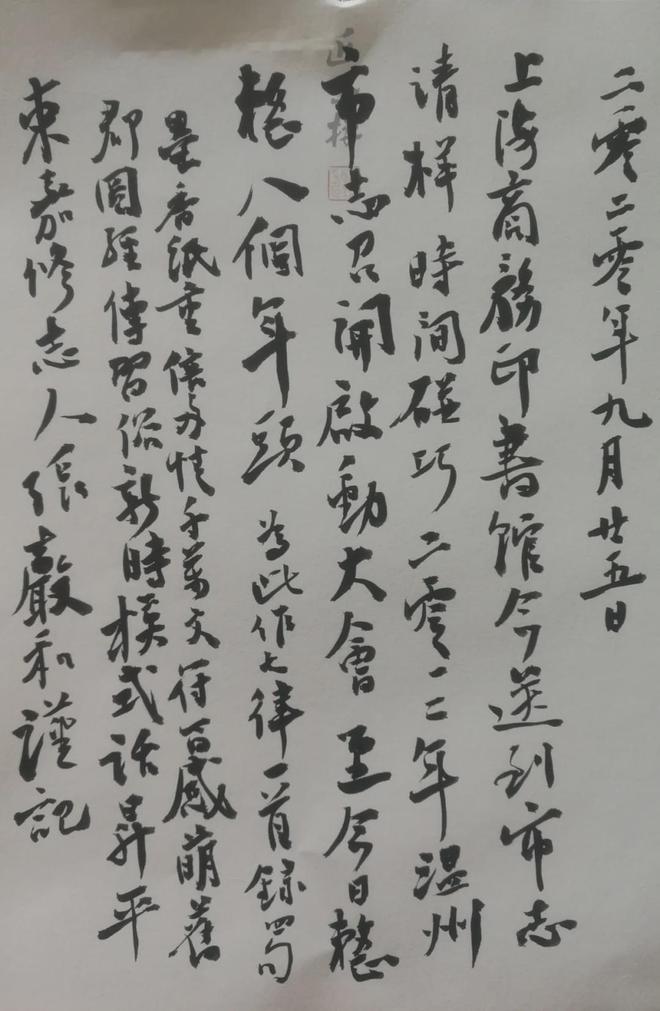 二零二零年九月廿五日
上海商務印書館今送到市志
請样時間碰巧二零一二年温州
市志召開啟動大會至今日整
整八個年頭為此作七律一首録四句
墨香紙重傢多情千萬文符百感萌舊
郡圖經傳習俗新時模式話昇平
東嘉修志人張嚴和謹記